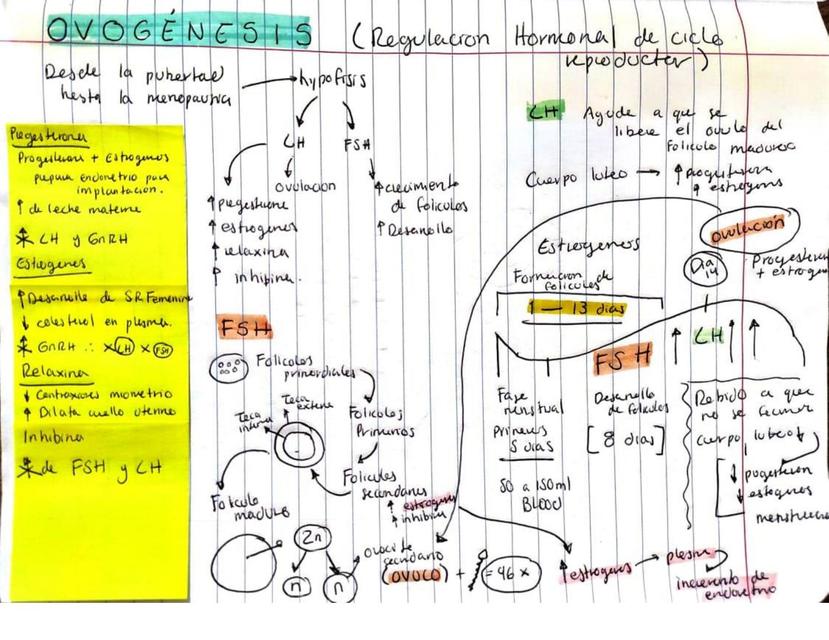 OVOGÉNESIS (Regulacion Hormonal de ciclo
reproductor)
Desde la pubertad
hasta la menopausia
hypofisis
LH
FSH
ovulacion
↑ progesterone
↑ estrogenos
↑ relaxina
↑ inhibina.
↑ crecimiento
de foliculos
↑ Desarrollo
Progesterona
Progesteron + Estrogenos
prepara endometrio para
implantacion.
↑ de leche materna
LH y GnRH
Estrogenos
↑ Desarrollo de S.R Femenino
↓ colesterol en plasma.
GnRH ∴ x LH x FSH
Relaxina
↓ Contraxiones miometrio
↑ Dilata cuello uterino
Inhibina
de FSH y LH
FSH
Foliculos
primordiales
Foliculos
Primarios
Teca
interna
Teca
externa
Foliculos
secundarios
↑ estrogenos
↑ inhibina
Foliculo
maduro
2n
n
n
ovocito
secundario
(OVULO) + = 46 x
LH
Ayuda a que se
libere el ovulo del
foliculo maduro
Cuerpo luteo → ↑ progesterona
↑ estrogenos
ovulación
Dia
14
Progesteron
+ estrogen
Estrogenos
Formacion
foliculos de
1 — 13 dias
FSH
↑ LH ↑ ↑
Fase
menstrual
Primeros
5 dias
50 a 150ml
BLOOD
Desarrollo
de foliculos
[8 dias]
Debido a que
no se
cuerpo luteo ↓
↓ progesteron
↓ estrogenos
menstruacion
↑ estrogenos → plasma
incremento de
endometrio